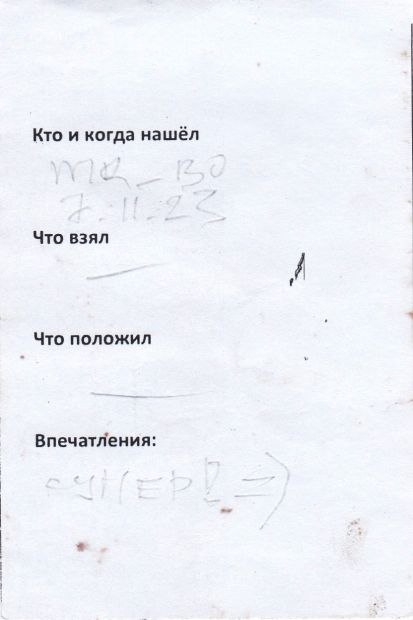 Кто и когда нашёл
MR_BO
7.11.23
Что взял
—
Что положил
—
Впечатления:
СУПЕР! =)